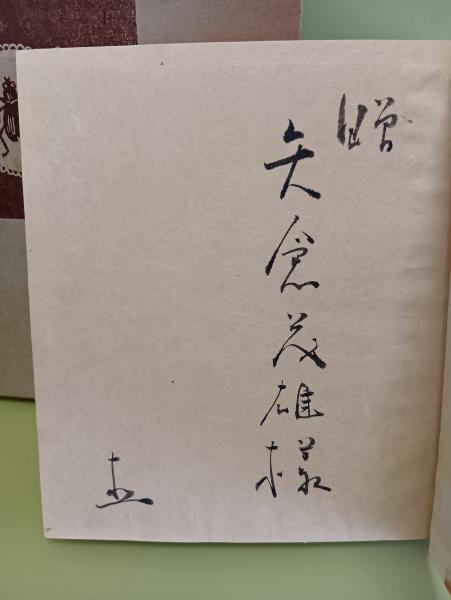 贈
矢倉茂雄様